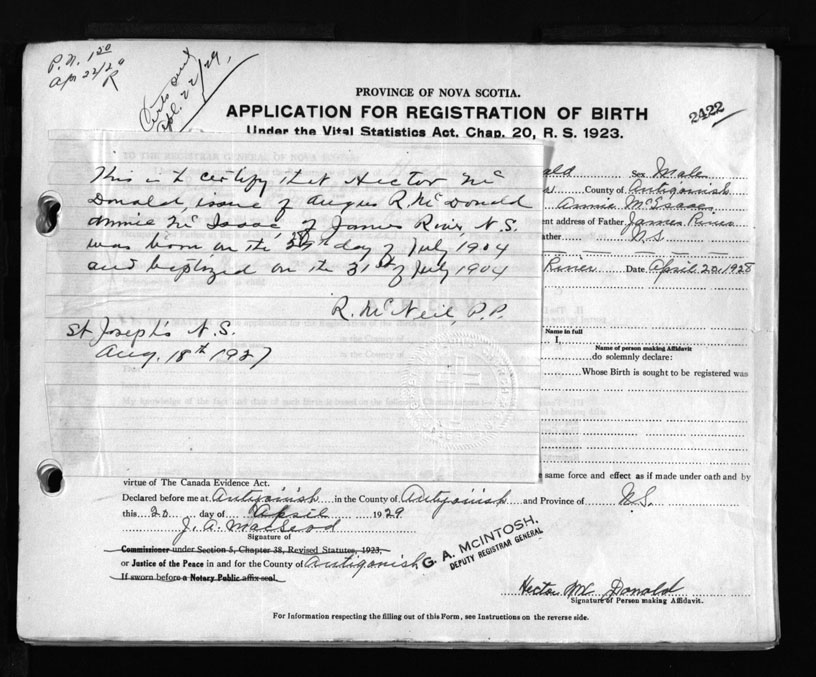 P.N. 1 20
Apr 22/29
R
Certs sent
Apl. 22/29.
PROVINCE OF NOVA SCOTIA.
APPLICATION FOR REGISTRATION OF BIRTH
Under the Vital Statistics Act, Chap. 20, R. S. 1923.
2422
This is to certify that Hector Mc
Donald, issue of Angus R. McDonald
Annie McIsaac, of James River, N.S.
was born on the day of July 1904
and baptized on the 31st of July 1904
R. McNeil, P.P.
St Joseph's N.S.
Aug. 18th 1927
ald Sex Male
County of Antigonish
Annie McIsaac
nt address of Father James River
ather N.S
River Date April 20, 1928
Name in full
I,
Name of person making Affidavit
do solemnly declare:
Whose Birth is sought to be registered was
e same force and effect as if made under oath and by
virtue of The Canada Evidence Act.
Declared before me at Antigonish in the County of Antigonish and Province of N.S.
this 20 day of April 1929
J. A. MacLeod
Signature of
Commissioner under Section 5, Chapter 38, Revised Statutes, 1923,
or Justice of the Peace in and for the County of Antigonish
If sworn before a Notary Public affix seal.
G. A. McINTOSH,
DEPUTY REGISTRAR GENERAL
Hector Mc Donald
Signature of Person making Affidavit.
For Information respecting the filling out of this Form, see Instructions on the reverse side.